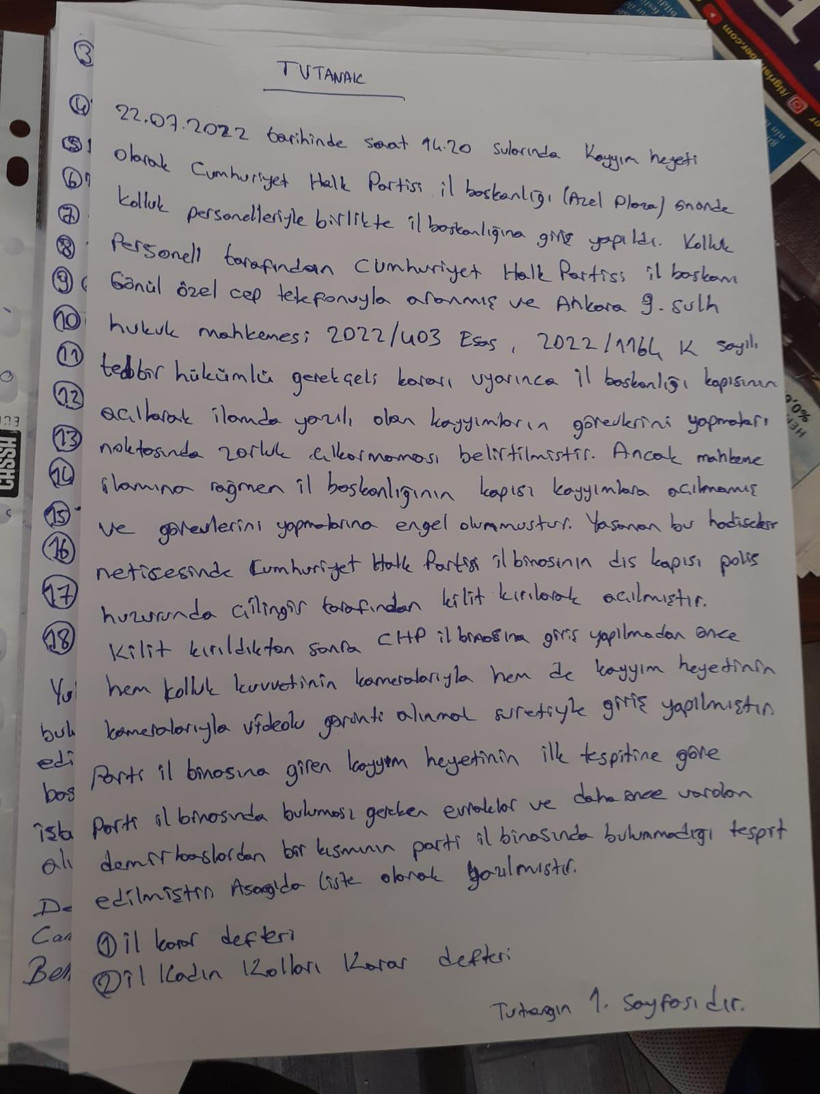 TUTANAK
22.07.2022 tarihinde saat 14.20 sularında Kayyım heyeti
olarak Cumhuriyet Halk Partisi il başkanlığı (Azel Plaza) önünde
kolluk personelleriyle birlikte il başkanlığına giriş yapıldı. Kolluk
Personeli tarafından Cumhuriyet Halk Partisi il başkanı
Gönül özel cep telefonuyla aranmış ve Ankara 9. sulh
hukuk mahkemesi 2022/403 Esas, 2022/1164 K sayılı
tedbir hükümlü gerekçeli kararı uyarınca il başkanlığı kapısının
açılarak ilamda yazılı olan kayyımların görevlerini yapmaları
noktasında zorluk çıkarmaması belirtilmiştir. Ancak mahkeme
ilamına rağmen il başkanlığının kapısı kayyımlara açılmamış
ve görevlerini yapmalarına engel olunmuştur. Yaşanan bu hadiseler
neticesinde Cumhuriyet Halk Partisi il binasının dış kapısı polis
huzurunda çilingir tarafından kilit kırılarak açılmıştır.
Kilit kırıldıktan sonra CHP il binasına giriş yapılmadan önce
hem kolluk kuvvetinin kameralarıyla hem de kayyım heyetinin
kameralarıyla videolu görüntü alınmak suretiyle giriş yapılmıştır.
Parti il binasına giren kayyım heyetinin ilk tespitine göre
Parti il binasında bulunması gereken evraklar ve daha önce varolan
demirbaşlardan bir kısmının parti il binasında bulunmadığı tespit
edilmiştir. Aşağıda liste olarak yazılmıştır.
① il karar defteri
② il Kadın Kolları Karar defteri
Tutanağın 1. Sayfasıdır.
3
4
5
6
7
8
9
10
11
12
13
14
15
16
17
18